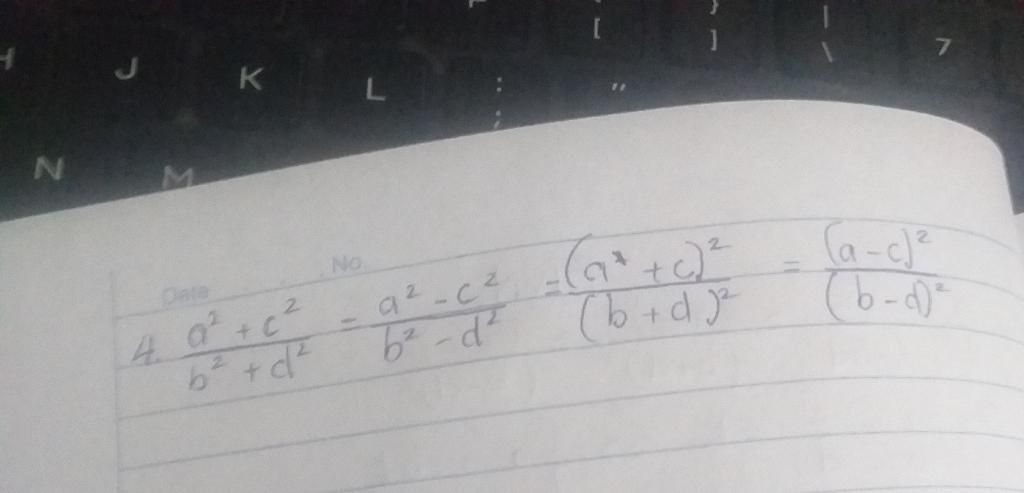 [ ] | \ 7
H J K L : ; "
N M
Date No.
4. a² + c² / b² + d² = a² - c² / b² - d² = (a* + c)² / (b + d)² = (a - c)² / (b - d)²